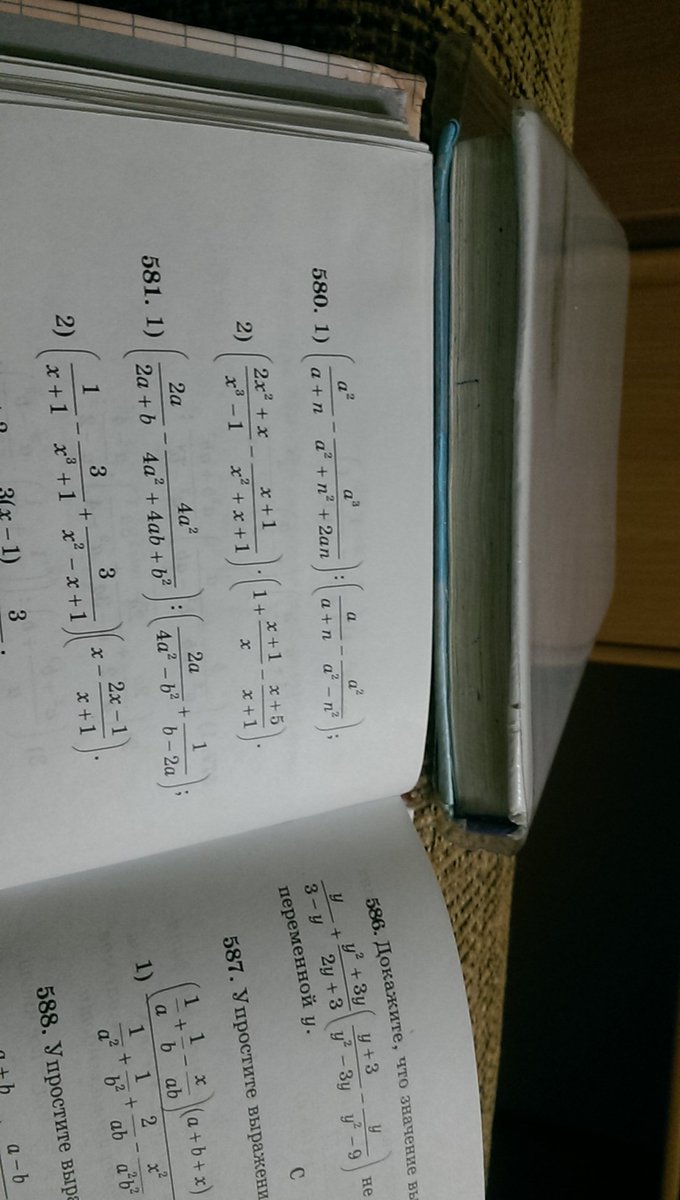 580. 1) (a²/(a + n) − a³/(a² + n² + 2an)) : (a/(a + n) − a²/(a² − n²));
2) ((2x² + x)/(x³ − 1) − (x + 1)/(x² + x + 1)) · (1 + (x + 1)/x − (x + 5)/(x + 1)).
581. 1) (2a/(2a + b) − 4a²/(4a² + 4ab + b²)) : (2a/(4a² − b²) + 1/(b − 2a));
2) (1/(x + 1) − 3/(x³ + 1) + 3/(x² − x + 1))(x − (2x − 1)/(x + 1)).
3(x − 1) 3
586. Докажите, что значение
y/(3 − y) + (y² + 3y)/(2y + 3) ((y + 3)/(y² − 3y) − y/(y² − 9)) не
переменной y.
С
587. Упростите
1) (1/a + 1/b − x/ab)(a + b + x)
1/a² + 1/b² + 2/ab − x²/a²b²
588. Упростите
a + b a − b